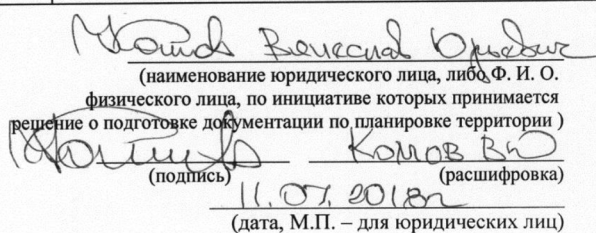 Котов Вячеслав Юрьевич
(наименование юридического лица, либо Ф. И. О.
физического лица, по инициативе которых принимается
решение о подготовке документации по планировке территории )
Котов В Ю
(подпись) (расшифровка)
11.07.2018г
(дата, М.П. – для юридических лиц)